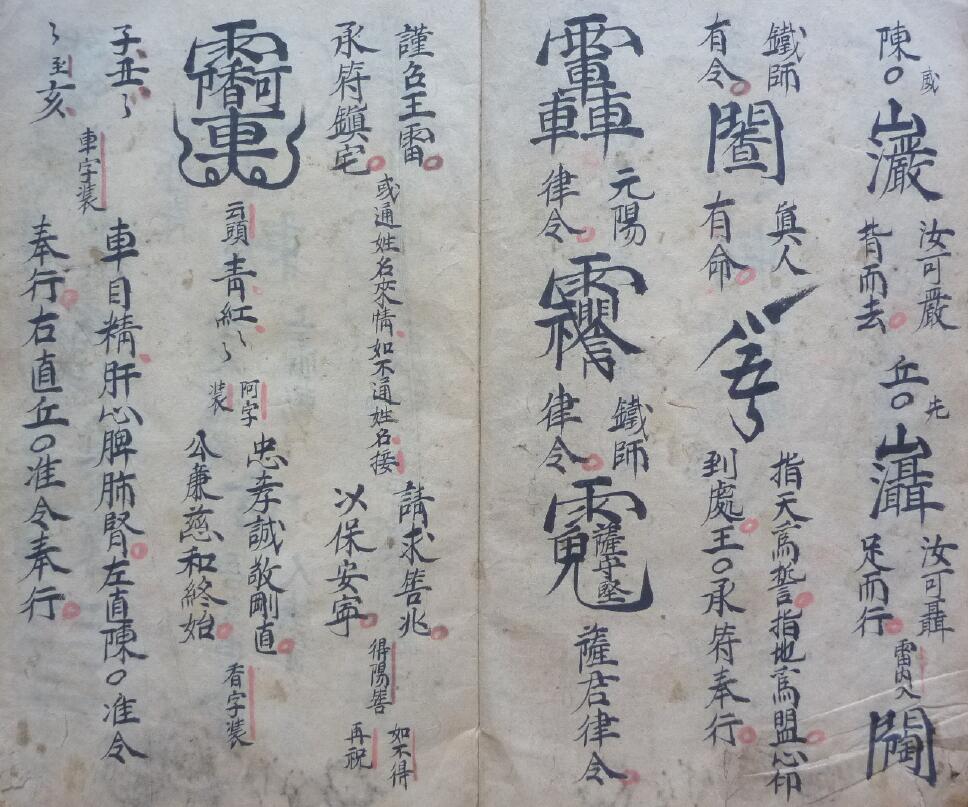 陳○
威
汝可嚴
背而去
丘○
先
汝可聶
足而行
雷内入
鐵師
有令
真人
有命
指天為誓指地為盟心印
到處王○承符奉行
元陽
律令
鐵師
律令
薩守堅
薩君律令
謹召王雷
承符鎮宅
或通姓名來情如不通姓名接
請求筶兆
以保安寧
得陽筶
如不得
再祝
云頭
青紅〻
阿字
装
忠孝誠敬剛直
公亷慈和終始
香字装
子丑〻
〻到亥
車字装
車目精肝心脾肺腎左直陳○准令
奉行右直丘○准令奉行